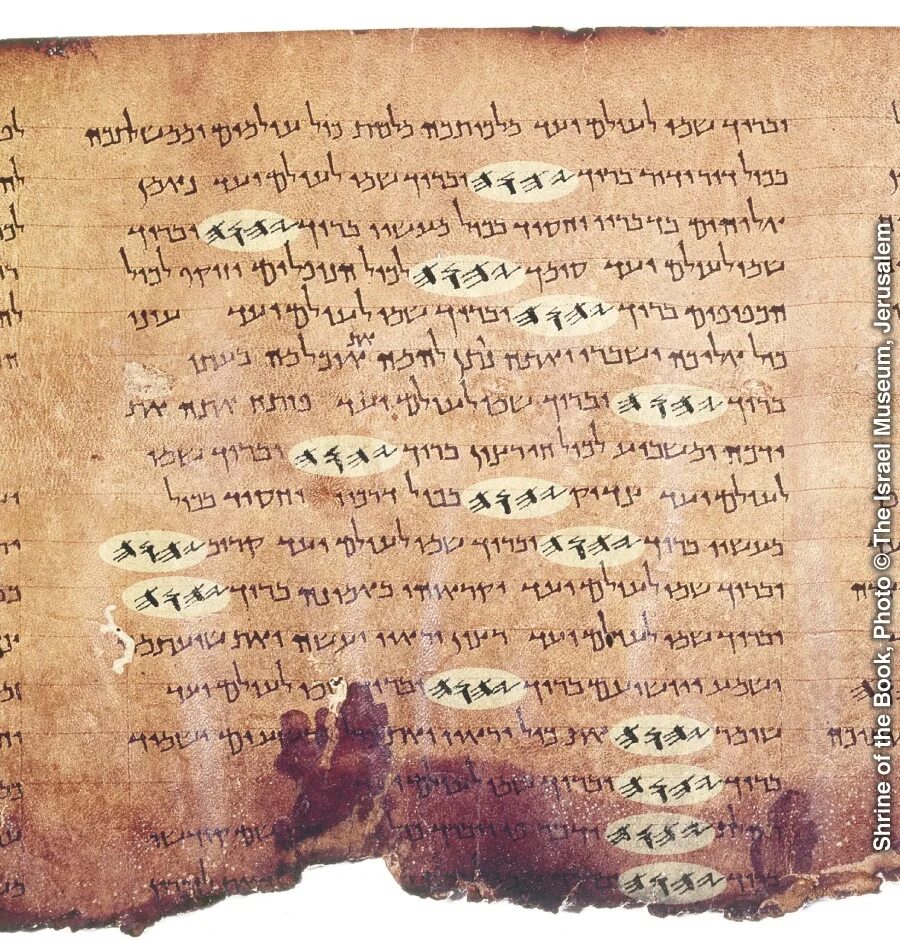 וברוך שמו לעולם ועד מלכותכה מלכות כול עולמים וממשלתכה
בכול דור ודור ברוך 𐤉𐤄𐤅𐤄 וברוך שמו לעולם ועד נאמן
אלוהים בדבריו וחסיד בכול מעשיו ברוך 𐤉𐤄𐤅𐤄 וברוך
שמו לעולם ועד סומך 𐤉𐤄𐤅𐤄 לכול הנופלים וזוקף לכול
הכפופים ברוך 𐤉𐤄𐤅𐤄 וברוך שמו לעולם ועד עיני
כול אליכה ישברו ואתה נותן להמה את אוכלמה בעתו
ברוך 𐤉𐤄𐤅𐤄 וברוך שמו לעולם ועד פותח אתה את
ידכה ומשביע לכול חי רצון ברוך 𐤉𐤄𐤅𐤄 וברוך שמו
לעולם ועד צדיק 𐤉𐤄𐤅𐤄 בכול דרכיו וחסיד בכול
מעשיו ברוך 𐤉𐤄𐤅𐤄 וברוך שמו לעולם ועד קרוב 𐤉𐤄𐤅𐤄
וברוך שמו לעולם ועד יקראוהו באמונה ברוך 𐤉𐤄𐤅𐤄
וברוך שמו לעולם ועד רצון יראיו יעשה ואת שועתמה
ישמע ויושיעם ברוך 𐤉𐤄𐤅𐤄 וברוך שמו לעולם ועד
שומר 𐤉𐤄𐤅𐤄 את כול יראיו ואת רשעים ישמיד
ברוך 𐤉𐤄𐤅𐤄 וברוך שמו לעולם
𐤉𐤄𐤅𐤄 ידבר פי ויברך קודשו
ברוך 𐤉𐤄𐤅𐤄
Shrine of the Book, Photo © The Israel Museum, Jerusalem